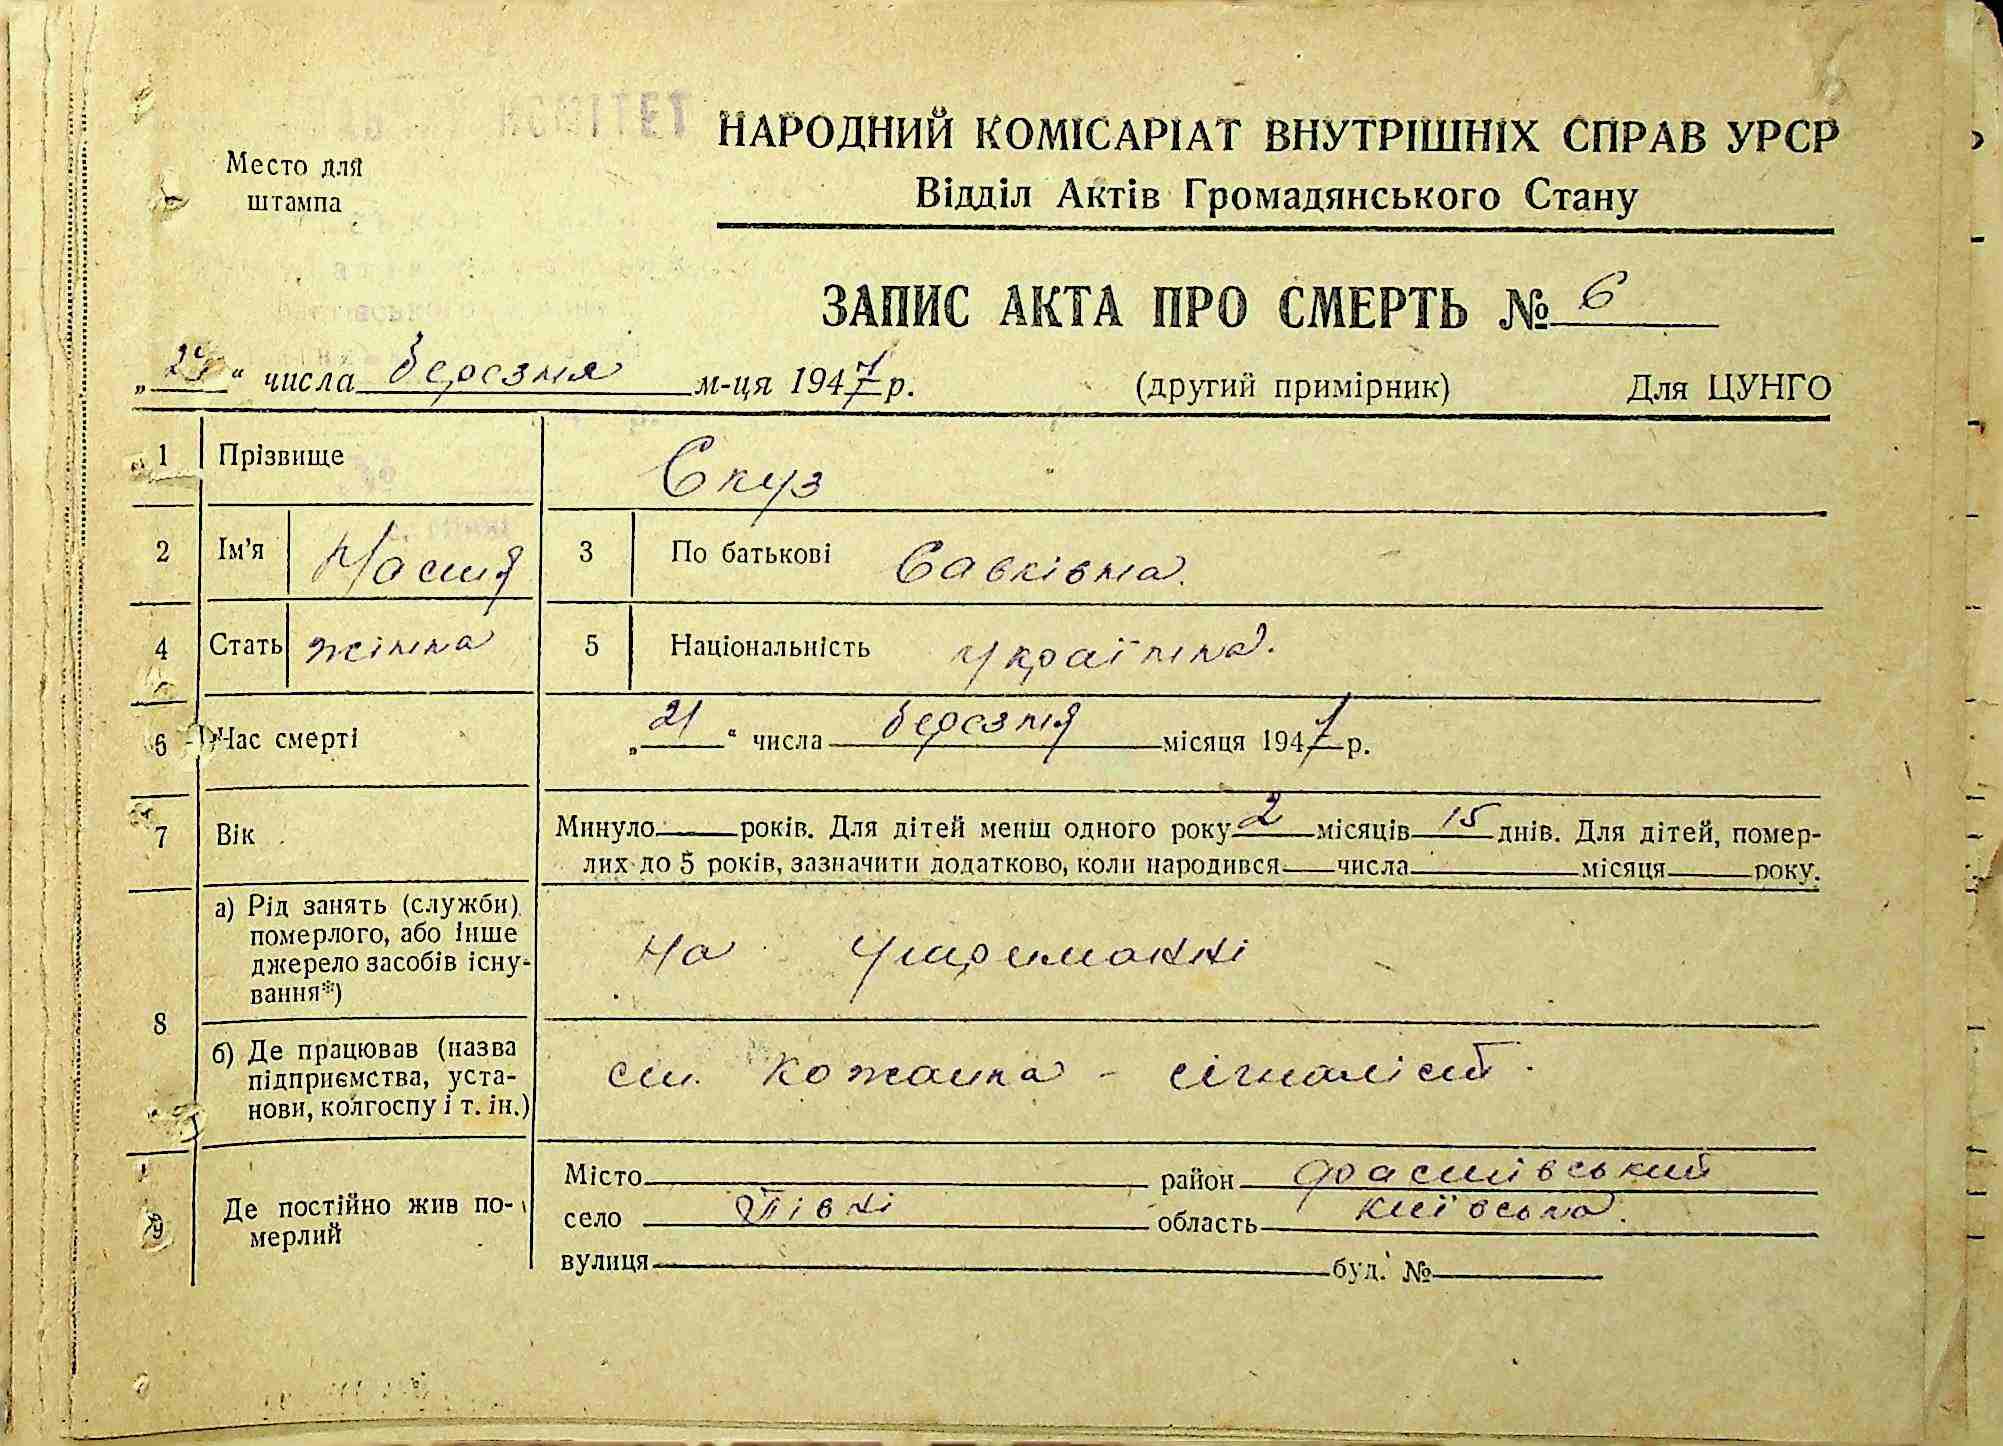 КОМІТЕТ
НАРОДНИЙ КОМІСАРІАТ ВНУТРІШНІХ СПРАВ УРСР
Место для
штампа
Відділ Актів Громадянського Стану
ЗАПИС АКТА ПРО СМЕРТЬ № 6
„24“ числа березня м-ця 1947 р. (другий примірник) Для ЦУНГО
1 Прізвище Скуз
2 Ім’я Настя 3 По батькові Савківна.
4 Стать жінка 5 Національність українка.
6 Час смерті „21“ числа березня місяця 1947 р.
7 Вік Минуло років. Для дітей менш одного року 2 місяців 15 днів. Для дітей, помер-
лих до 5 років, зазначити додатково, коли народився числа місяця року.
8 а) Рід занять (служби) померлого, або інше джерело засобів існу-вання*) на утриманні
б) Де працював (назва підприємства, уста-нови, колгоспу і т. ін.) ст. Кожанка - сігналіст.
9 Де постійно жив по-мерлий
Місто район Фастівський
село Півні область Київська.
вулиця буд. №